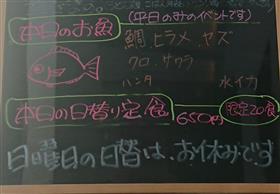 本日のお魚
(平日のみのイベントです)
鯛 ヒラメ ヤズ
クロ サワラ
ハンタ 水イカ
本日の日替り定食 650円 限定20食
日曜日の日替は、お休みです